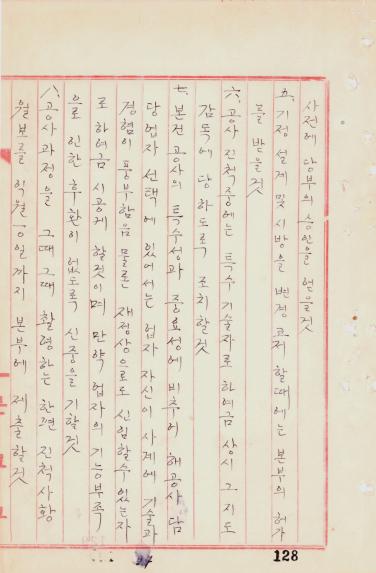 사전에 당부의 승인을 얻을것
五. 기정 설계 및 시방을 변경코저 할때에는 본부의 허가
를 받을것
六. 공사 진척중에는 특수 기술자로 하여금 상시 그 지도
감독에 당하도록 조치할것
七. 본건 공사의 특수성과 중요성에 비추어 해공사 담
당업자 선택에 있어서는 업자 자신이 사계에 기술과
경험이 풍부함은 물론 재정상으로도 신임할수 있는자
로 하여금 시공케 할것이며 만약 업자의 기능부족
으로 인한 후환이 없도록 신중을 기할것
八. 공사과정을 그때그때 촬영하는 한편 진척사황
월보를 익월 일까지 본부에 제출할것
128